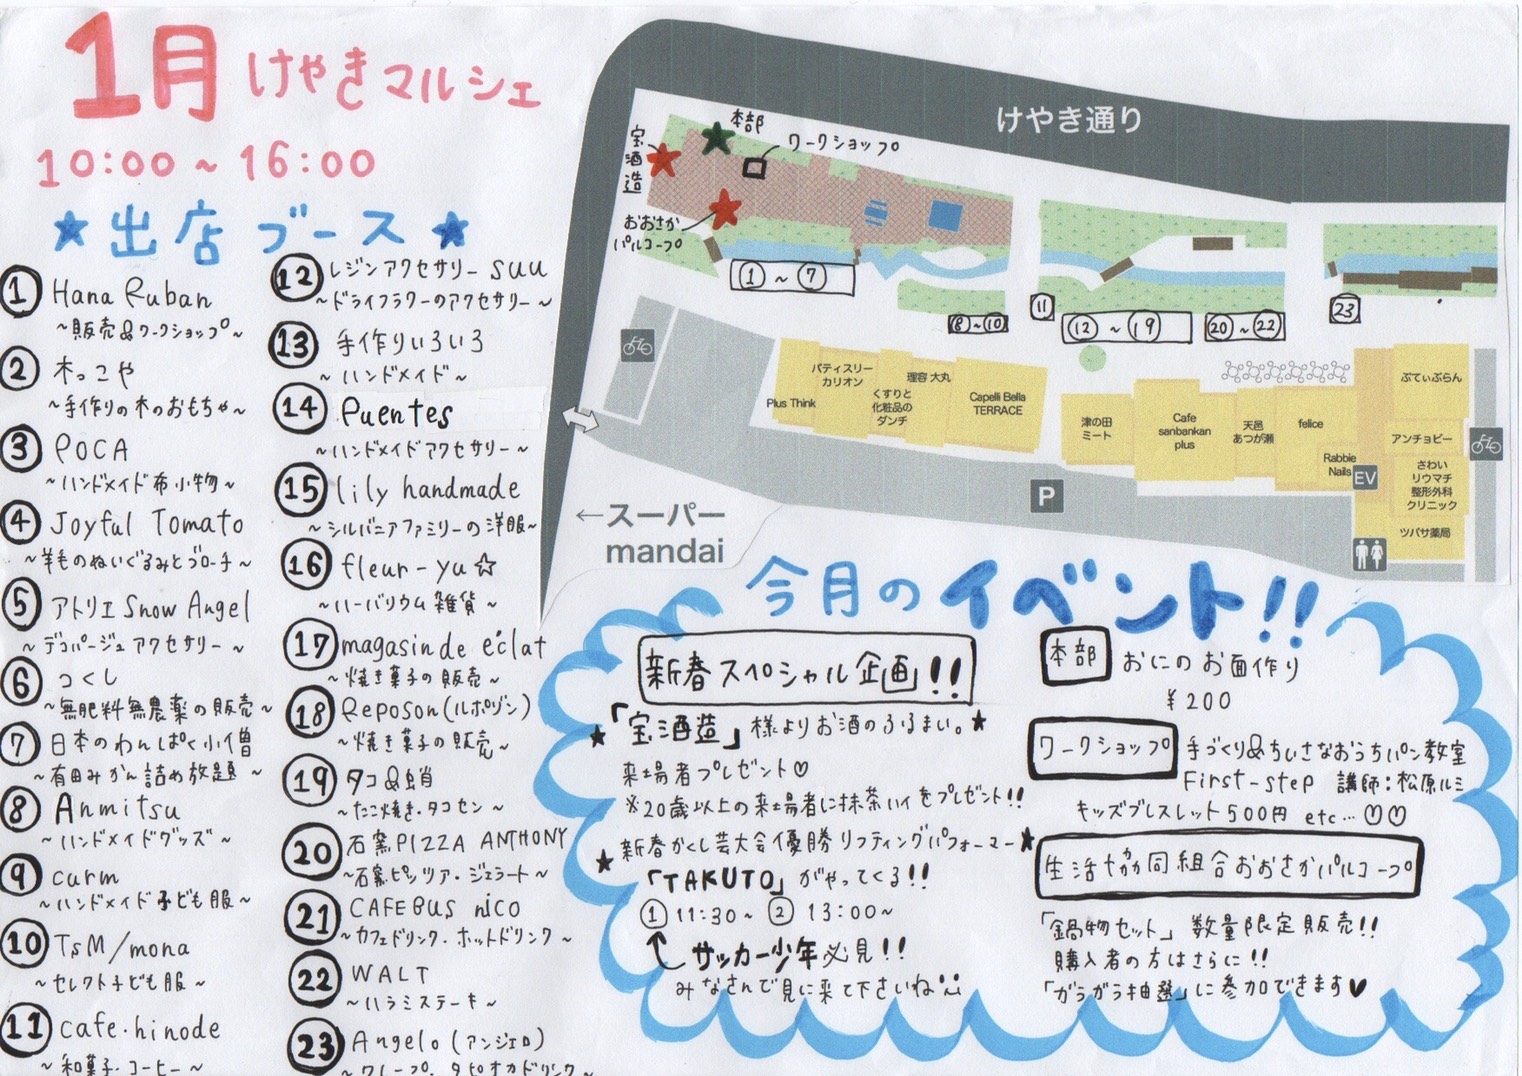 1月 けやきマルシェ
10:00 ~ 16:00
★出店ブース★
① Hana Ruban
~販売&ワークショップ~
② 木っこや
~手作りの木のおもちゃ~
③ POCA
~ハンドメイド布小物~
④ Joyful Tomato
~羊毛のぬいぐるみとブローチ~
⑤ アトリエ Snow Angel
~デコパージュアクセサリー~
⑥ つくし
~無肥料無農薬の販売~
⑦ 日本のわんぱく小僧
~有田みかん詰め放題~
⑧ Anmitsu
~ハンドメイドグッズ~
⑨ curm
~ハンドメイド子ども服~
⑩ TsM/mona
~セレクト子ども服~
⑪ cafe・hinode
~和菓子・コーヒー~
⑫ レジンアクセサリー suu
~ドライフラワーのアクセサリー~
⑬ 手作りいろいろ
~ハンドメイド~
⑭ Puentes
~ハンドメイドアクセサリー~
⑮ lily handmade
~シルバニアファミリーの洋服~
⑯ fleur-yu☆
~ハーバリウム雑貨~
⑰ magasinde e'clat
~焼き菓子の販売~
⑱ Reposon(ルポゾン)
~焼き菓子の販売~
⑲ タコ&蛸
~たこ焼き・タコセン~
⑳ 石窯PIZZA ANTHONY
~石窯ピッツァ・ジェラート~
㉑ CAFEBUS nico
~カフェドリンク・ホットドリンク~
㉒ WALT
~ハラミステーキ~
㉓ Angelo(アンジェロ)
~クレープ・タピオカドリンク~
けやき通り
本部
宝酒造
ワークショップ
おおさかパルコープ
①~⑦
⑧~⑩
⑪
⑫~⑲
⑳~㉒
㉓
Plus Think
パティスリー
カリオン
くすりと
化粧品の
ダンチ
理容 大丸
Capelli Bella
TERRACE
津の田
ミート
Cafe
sanbankan
plus
天邑
あつが瀬
felice
Rabbie
Nails
EV
ぷてぃぷらん
アンチョビー
さわい
リウマチ
整形外科
クリニック
ツバサ薬局
P
←スーパー
mandai
今月のイベント!!
新春スペシャル企画!!
★「宝酒造」様よりお酒のふるまい。★
来場者プレゼント♡
※20歳以上の来場者に抹茶ハイをプレゼント!!
★新春かくし芸大会優勝リフティングパフォーマー★
「TAKUTO」がやってくる!!
① 11:30~ ② 13:00~
サッカー少年必見!!
みなさんで見に来て下さいね
本部 おにのお面作り
¥200
ワークショップ 手づくり&ちいさなおうちパン教室
First-step 講師:松原ルミ
キッズブレスレット500円 etc…♡♡
生活協同組合おおさかパルコープ
「鍋物セット」数量限定販売!!
購入者の方はさらに!!
「ガラガラ抽選」に参加できます♥